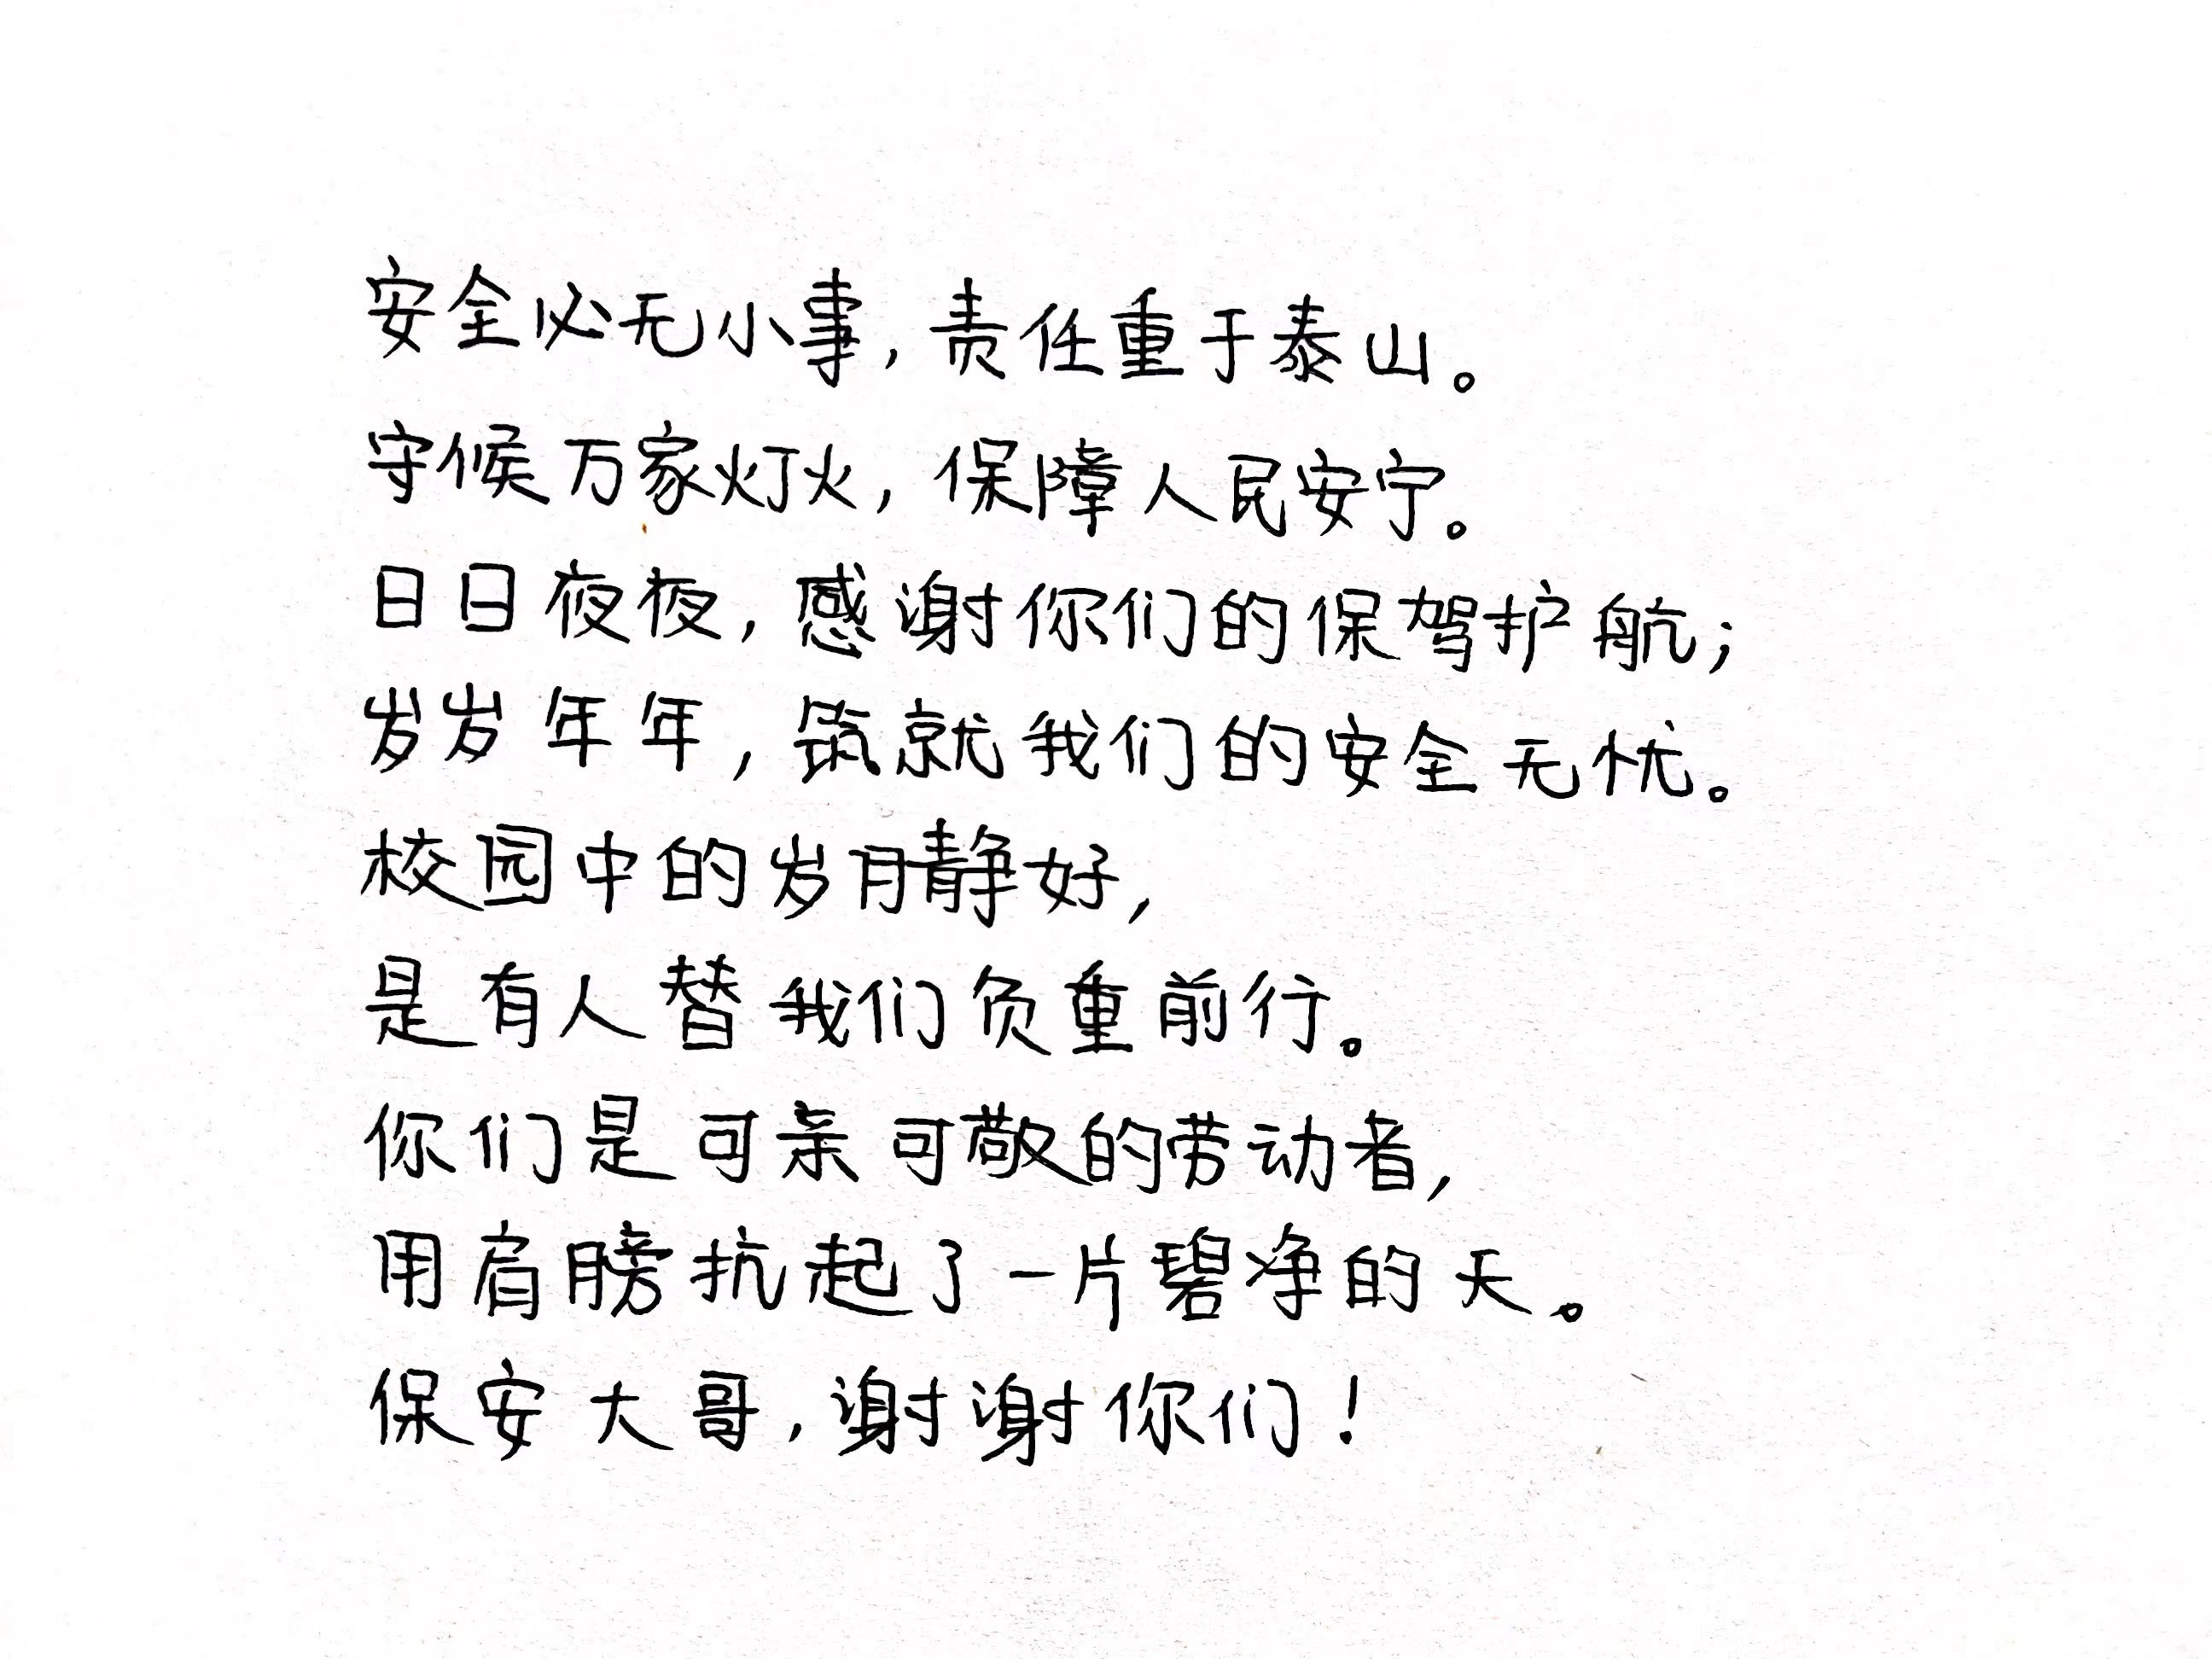 安全必无小事，责任重于泰山。
守候万家灯火，保障人民安宁。
日日夜夜，感谢你们的保驾护航；
岁岁年年，筑就我们的安全无忧。
校园中的岁月静好，
是有人替我们负重前行。
你们是可亲可敬的劳动者，
用肩膀抗起了一片碧净的天。
保安大哥，谢谢你们！